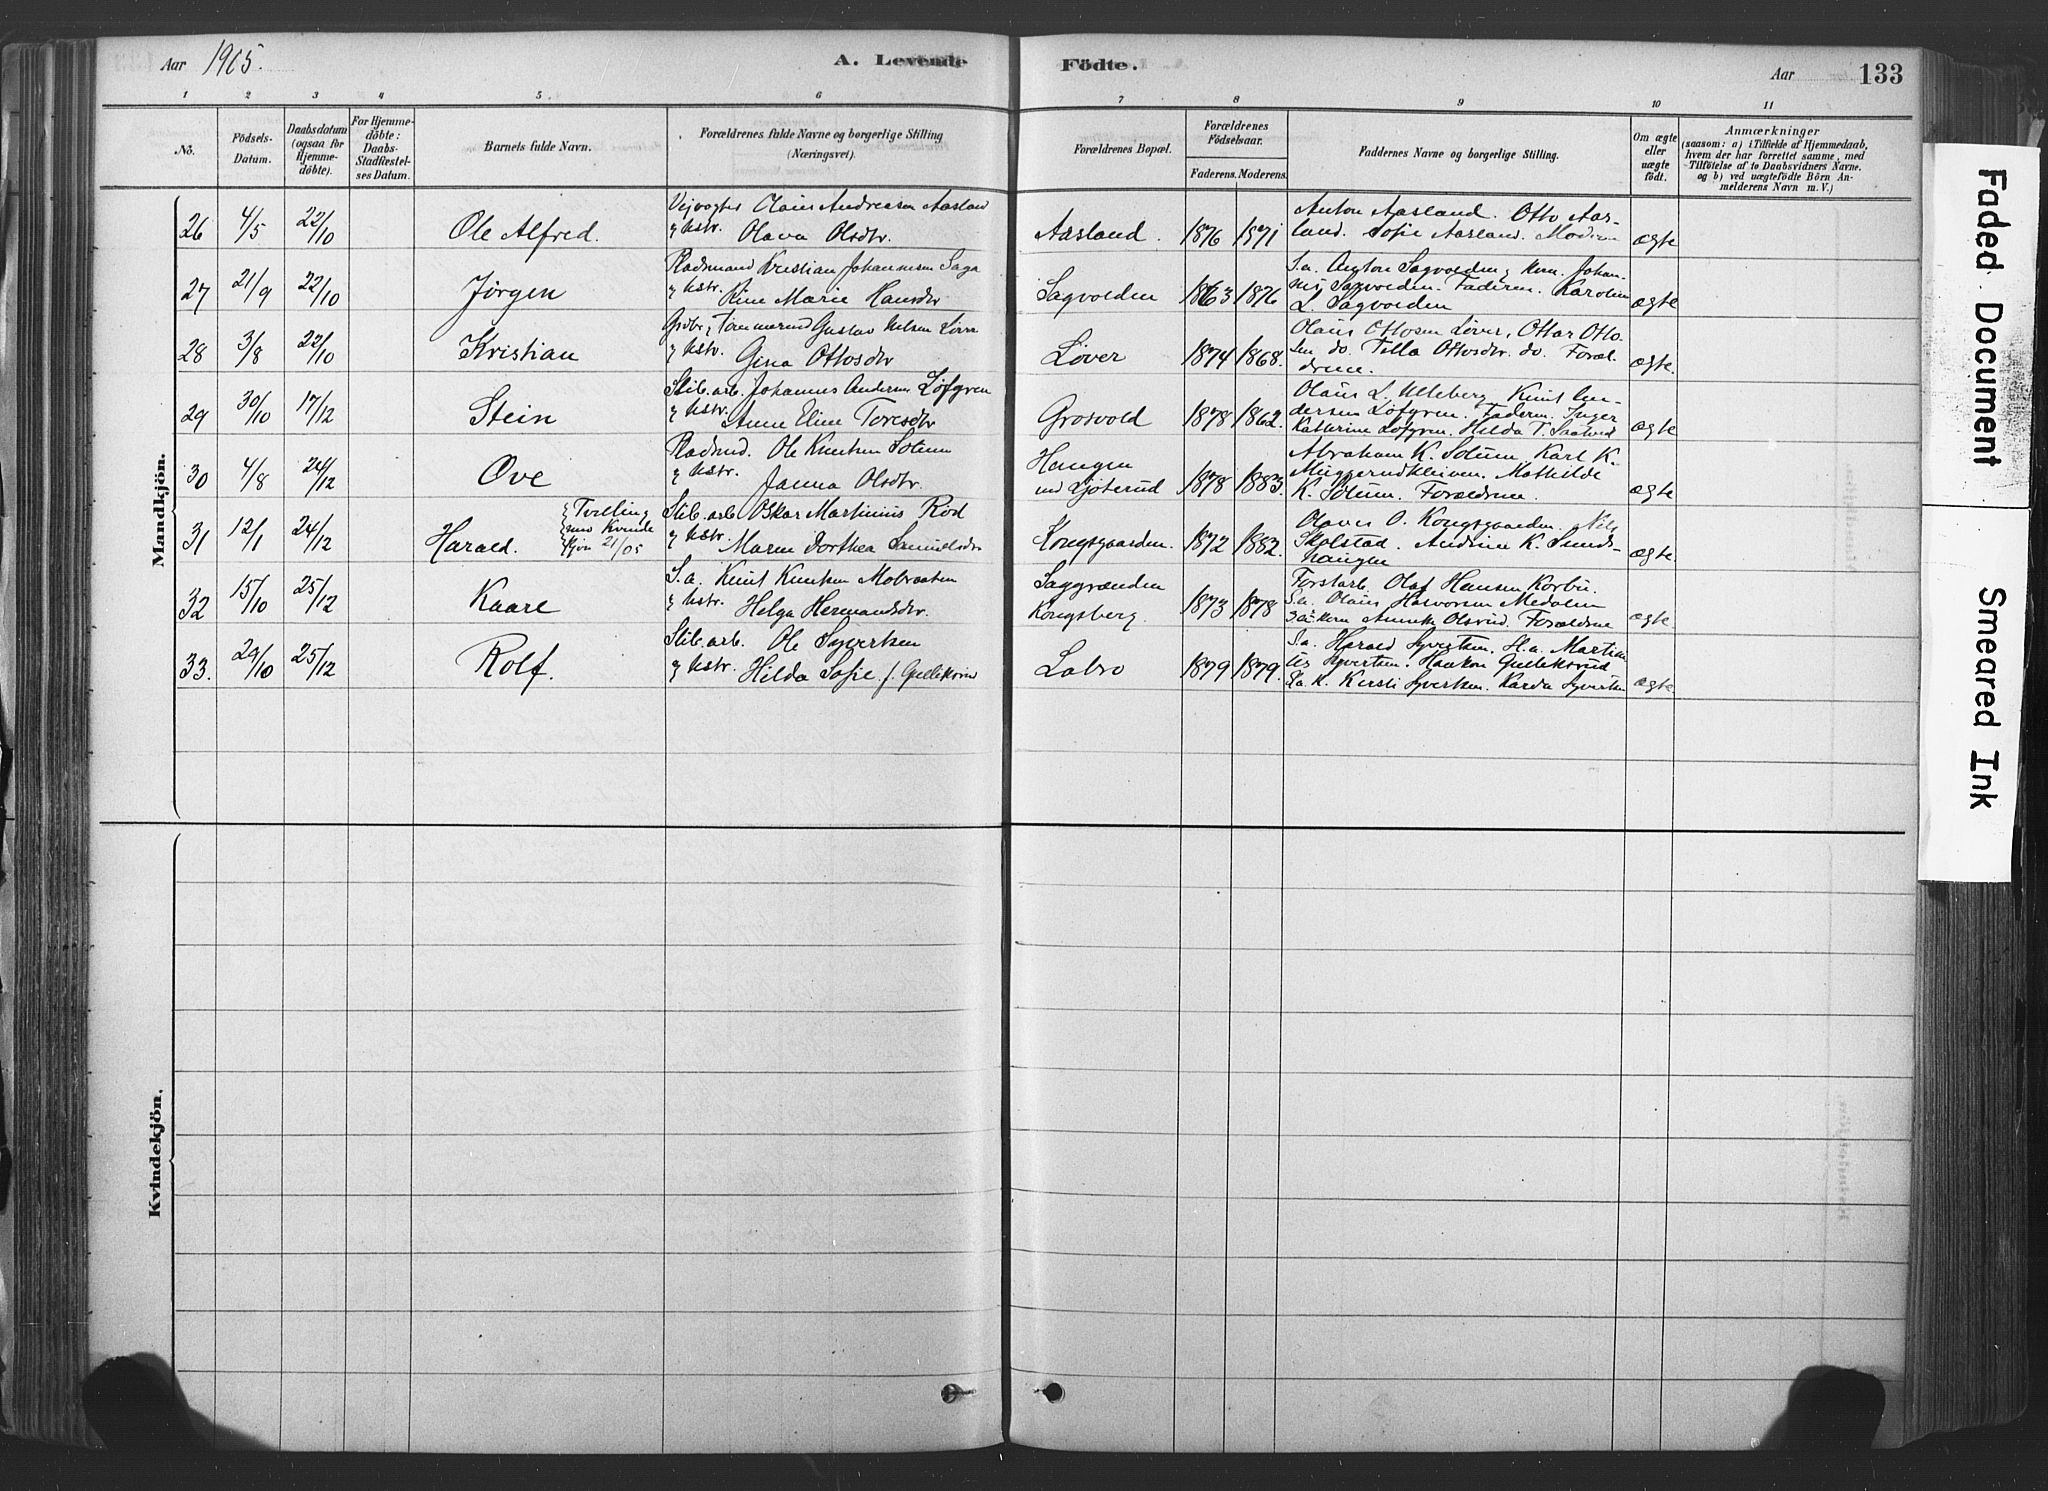 Aar 1905.
A. Levende Födte.
Aar
133
1 2 3 4 5 6 7 8 9 10 11
No.
Födsels-Datum.
Daabsdatum (ogsaa for Hjemmedöbte).
For Hjemmedöbte: Daabs-Stadfæstelses Datum.
Barnets fulde Navn.
Forældrenes fulde Navne og borgerlige Stilling (Næringsvei).
Forældrenes Bopæl.
Forældrenes Födselsaar.
Faderens. Moderens.
Faddernes Navne og borgerlige Stilling.
Om ægte eller uægte födt.
Anmærkninger
(saasom: a) i Tilfælde af Hjemmedaab, hvem der har forrettet samme, med Tilföielse af to Daabsvidners Navne, og b) ved uægtefödte Börn Anmelderens Navn m. V.)
Mandkjön.
26 4/5 22/10 Ole Alfred.
Veivogter Olaus Andreasen Aasland
& hstr. Olava Olsdtr.
Aasland. 1876 1871
Anton Aasland. Otto Aas-
land. Sofie Aasland. ægte
27 21/9 22/10 Jörgen
Kristian Johannesen
& hstr. Marie Hansdtr
Sagvolden 1863 1876
S.a. Anton Sagvolden & kone. Johan-
nes Sagvolden. Faderen. Karoline
L. Sagvolden ægte
28 3/8 22/10 Kristian
Gustav Nilsen
& hstr. Gina Ottosdtr
Löver 1874 1868.
Olaus Ottosen Löver, Ottar Otto-
sen do. Tilla Ottosdtr. do. Foræl-
drene. ægte.
29 30/10 17/12 Stein
Stib. arb. Johannes Andersen Löfgren
& hstr. Anne Eline Toresdtr
Grosvold 1878 1862.
Olaus L. Ulleberg. Knut An-
dersen Löfgren. Faderen. Inger
Kathrine Löfgren. Hilda T. ægte
30 4/8 24/12 Ove
Ole Knutsen Solum
& hstr. Janna Olsdtr.
Haugen
und Ljoterud 1878 1883.
Abraham K. Solum. Karl K.
Muggerudkleiven. Mathilde
K. Solum. Forældrene. ægte
31 12/1 24/12 Harald.
Tvilling
med Kvinde
kjön 21/05
Stib. arb. Oskar Martinius Röd
& hstr. Maren Dorthea Samuelsdtr
Kongsgaarden. 1872 1882.
Olaves O. Kongsgaarden. Nils
Skolstad. Andrine K. Sunds-
haugen ægte
32 15/10 25/12 Kaare
S.a. Knut Knutsen Mobraaten
& hstr. Helga Hermandsdtr.
Saggrænden
Kongsberg. 1873 1878
Forstarb. Olaf Hansen Korbu.
S.a. Olaus Halvorsen Medalen
Forældrene ægte.
33. 29/10 25/12 Rolf.
Stib. arb. Ole Syvertsen
& hstr. Hilda Sofie f. Gulliksrud
Labro 1879 1879.
S.a. Harald Syvertsen. S.a. Martin-
ius Syvertsen. Haakon Gulliksrud
Kirsti Syvertsen. Karda Syvertsen ægte
Kvindekjön.
Faded Document
Smeared Ink